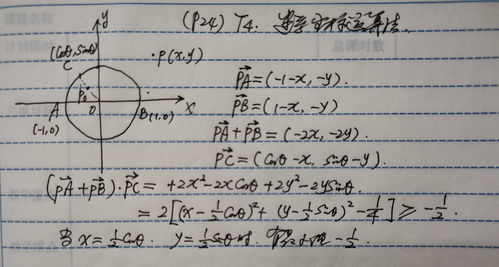 (P24) T4. 坐标运算法.
总课时数
y
(cosθ, sinθ)
C
·P(x,y)
P₀
A
O
B(1,0)
X
(-1,0)
PA⃗=(-1-x, -y)
PB⃗=(1-x, -y)
PA⃗+PB⃗=(-2x, -2y).
PC⃗=(cosθ-x, sinθ-y).
(PA⃗+PB⃗)·PC⃗= +2x²-2xcosθ+2y²-2ysinθ.
=2[(x-½cosθ)²+(y-½sinθ)²-¼]≥-½.
当x=½cosθ. y=½sinθ时. -½.